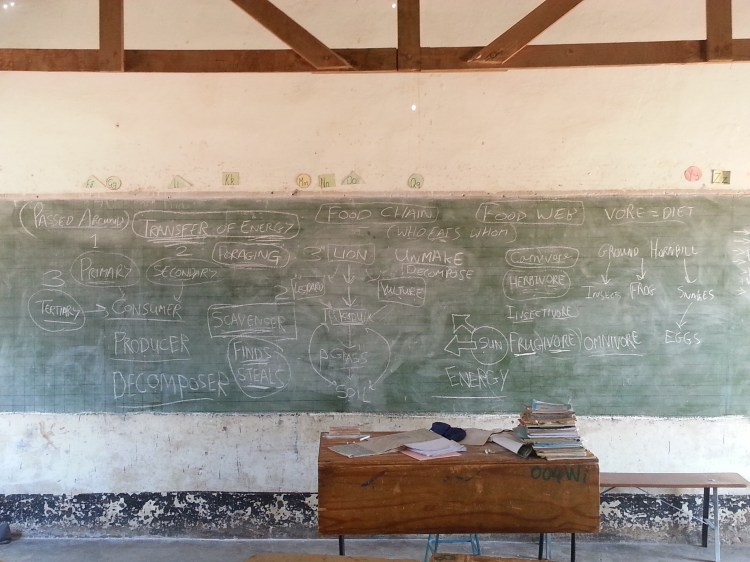 Kk
Nn
Oo
Qq
PASSED AROUND
1
TRANSFER OF ENERGY
2
3
PRIMARY
SECONDARY
TERTIARY
CONSUMER
PRODUCER
DECOMPOSER
FORAGING
SCAVENGER
FINDS
STEALS
FOOD CHAIN
(WHO EATS WHOM
3 LION
2
VULTURE
GRASS
SOIL
UNMAKE
DECOMPOSE
SUN
ENERGY
FOOD WEB
VORE = DIET
Carnivore
HERBIVORE
INSECTIVORE
(FRUGIVORE)
OMNIVORE
GROUND HORNBILL
INSECTS
FROG
SNAKES
EGGS
004Wi